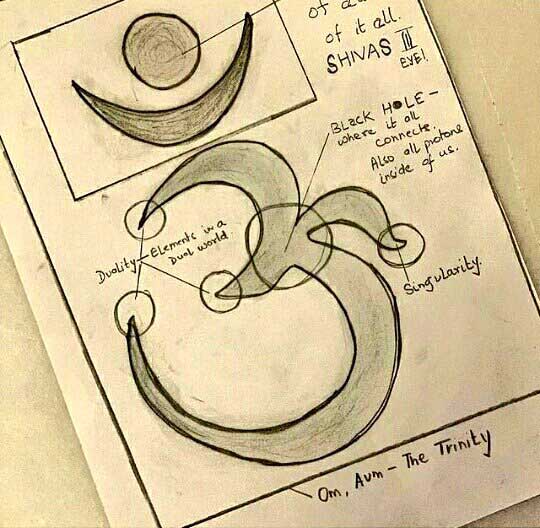 of
of it all.
SHIVAS III
EYE!
BLACK HOLE –
where it all
connects.
Also all protons
inside of us.
Duality – Elements in a
Dual world.
Singularity.
Om, Aum – The Trinity